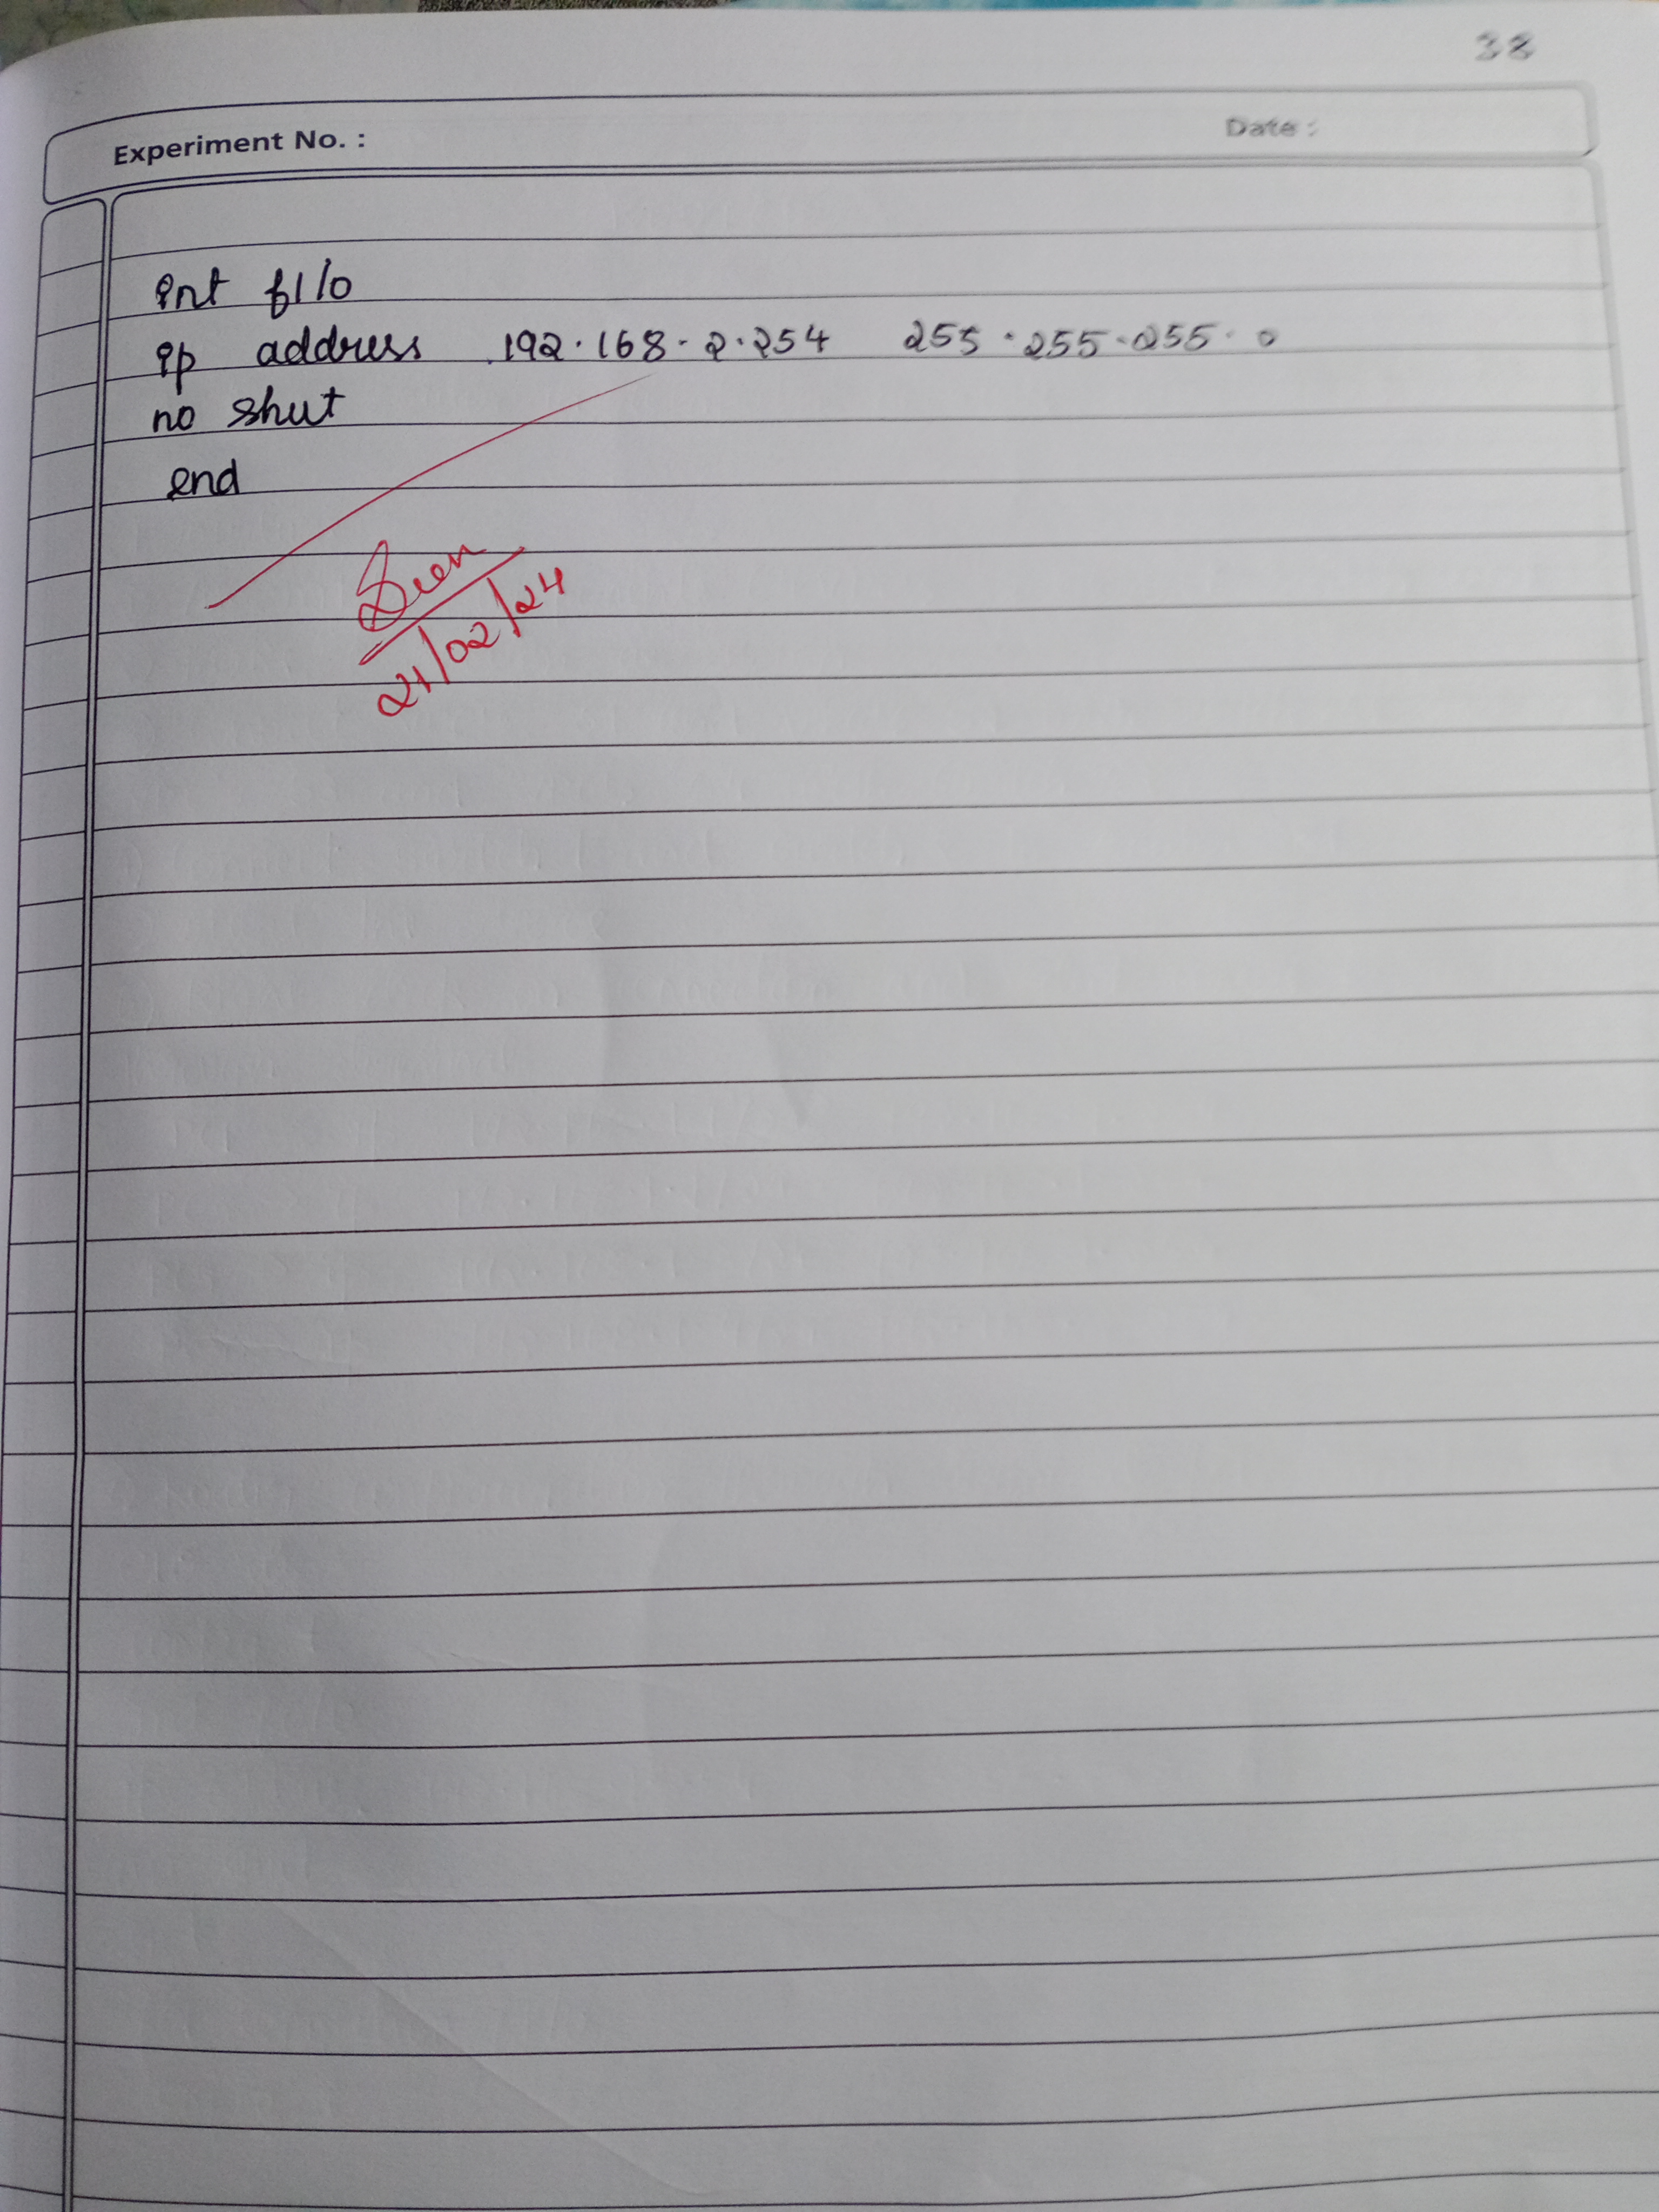 38
Experiment No. : Date :
int f1/0
ip address 192.168.2.254 255.255.255.0
no shut
end
Seen
21/02/24